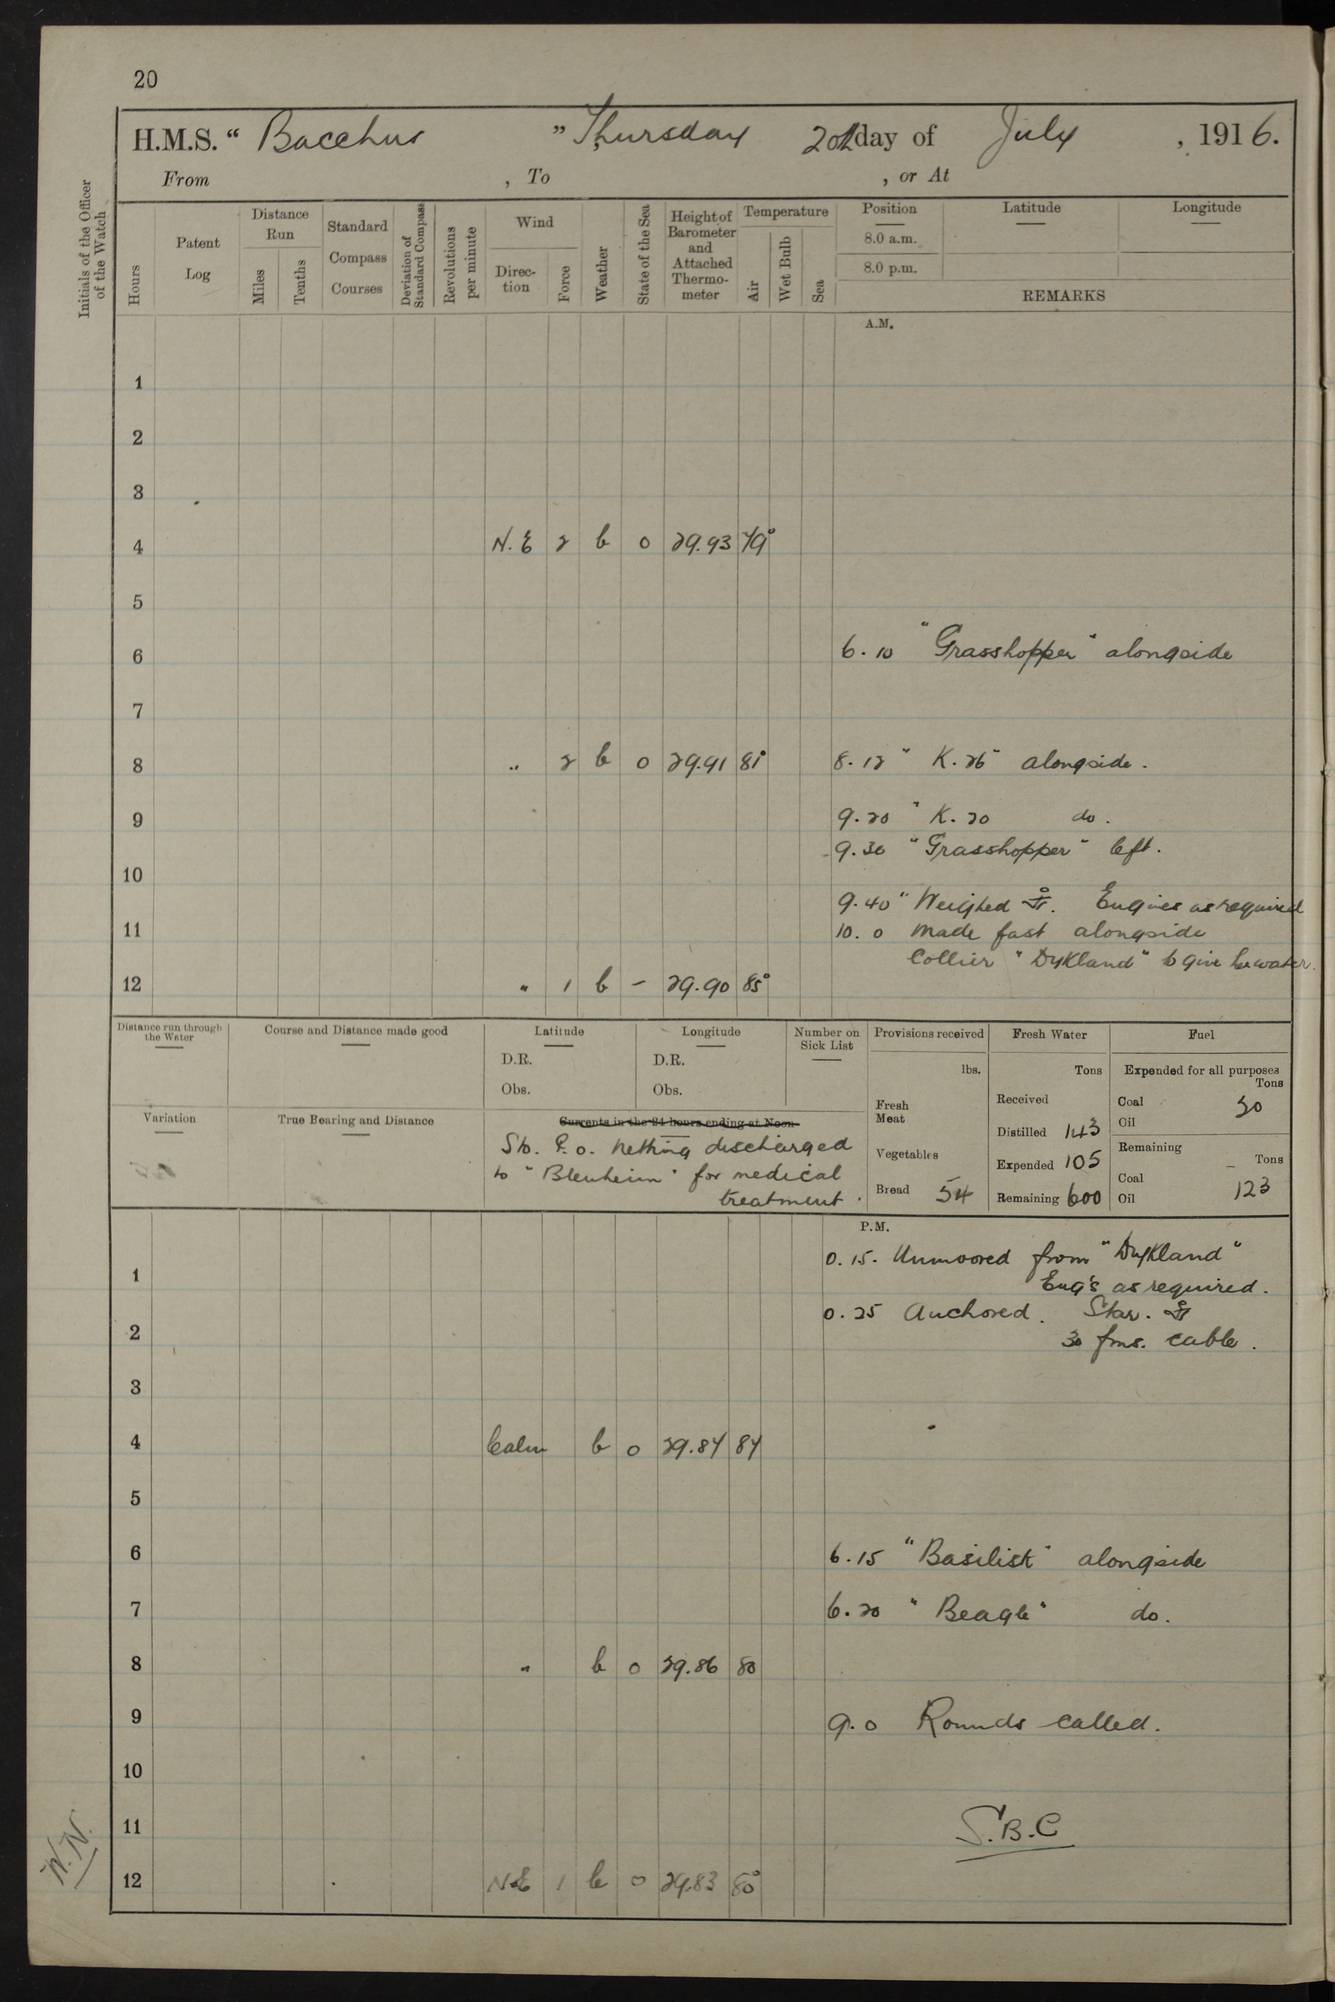 20
H.M.S. “ Bacchus ” Thursday 20th day of July , 1916.
From , To , or At
Initials of the Officer of the Watch
Hours
Patent Log
Distance Run
Miles
Tenths
Standard Compass Courses
Deviation of Standard Compass
Revolutions per minute
Wind
Direction
Force
Weather
State of the Sea
Height of Barometer and Attached Thermometer
Temperature
Air
Wet Bulb
Sea
Position
8.0 a.m.
8.0 p.m.
Latitude
Longitude
REMARKS
A.M.
1
2
3
4 N.E 2 b 0 29.93 79°
5
6 6.10 "Grasshopper" alongside
7
8 " 2 b 0 29.91 81° 8.12 " K.26" alongside.
9 9.20 " K.20 do.
9.30 "Grasshopper" left.
10
9.40 " Weighed ⚓. Engines as required
11 10.0 Made fast alongside
Collier "Dykland" to give her water.
12 " 1 b - 29.90 85°
Distance run through the Water
Course and Distance made good
Latitude
D.R.
Obs.
Longitude
D.R.
Obs.
Number on Sick List
Provisions received
lbs.
Fresh Meat
Vegetables
Bread 54
Fresh Water
Tons
Received
Distilled 143
Expended 105
Remaining 600
Fuel
Expended for all purposes
Tons
Coal 30
Oil
Remaining
Tons
Coal 123
Oil
Variation
True Bearing and Distance
Currents in the 24 hours ending at Noon
Sto. P.O. discharged
to "Blenheim" for medical
treatment.
P.M.
0.15. Unmoored from "Dykland"
1 Eng's as required.
0.25 Anchored. Star. ⚓
2 30 fms. cable.
3
4 Calm b 0 29.84 84
5
6 6.15 "Basilisk" alongside
7 6.20 " Beagle" do.
8 " b 0 29.86 80
9 9.0 Rounds called.
10
11 S.B.C
12 NE 1 b 0 29.83 80°
W.N.